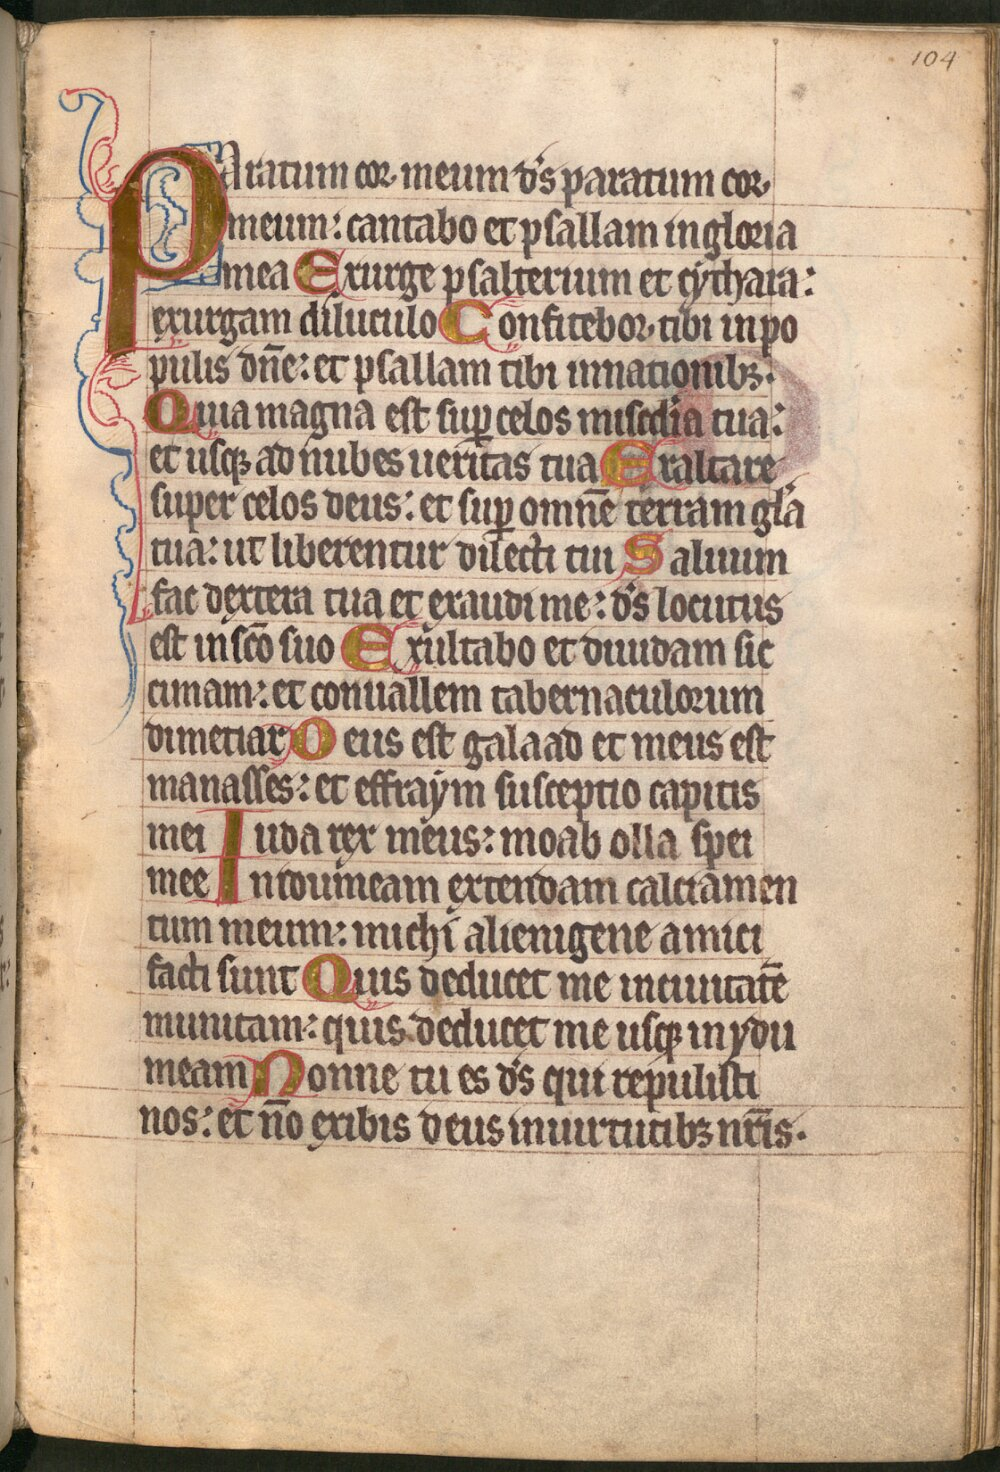 104
Paratum cor meum d̅s paratum cor
meum: cantabo et psallam in gloria
mea Exurge psalterium et cythara:
exurgam diluculo Confitebor tibi in po
pulis dn̅e: et psallam tibi in nationibꝫ.
Quia magna est sup̲ celos mis̅cdia tua:
et usqꝫ ad nubes ueritas tua Exaltare
super celos deus: et sup̲ omne̅ terram gl̅a
tua: ut liberentur dilecti tui Saluum
fac dextera tua et exaudi me: d̅s locutus
est in sc̅o suo Exultabo et diuidam sic
cimam: et conuallem tabernaculorum
dimetiar Deus est galaad et meus est
manasses: et effraym susceptio capitis
mei Iuda rex meus: moab olla spei
mee In idumeam extendam calciamen
tum meum: michi alienigene amici
facti sunt Quis deducet me in ciuitate̅
munitam: quis deducet me usqꝫ in ydu
meam Nonne tu es d̅s qui repulisti
nos: et n̅o exibis deus in uirtutibꝫ nr̅is.